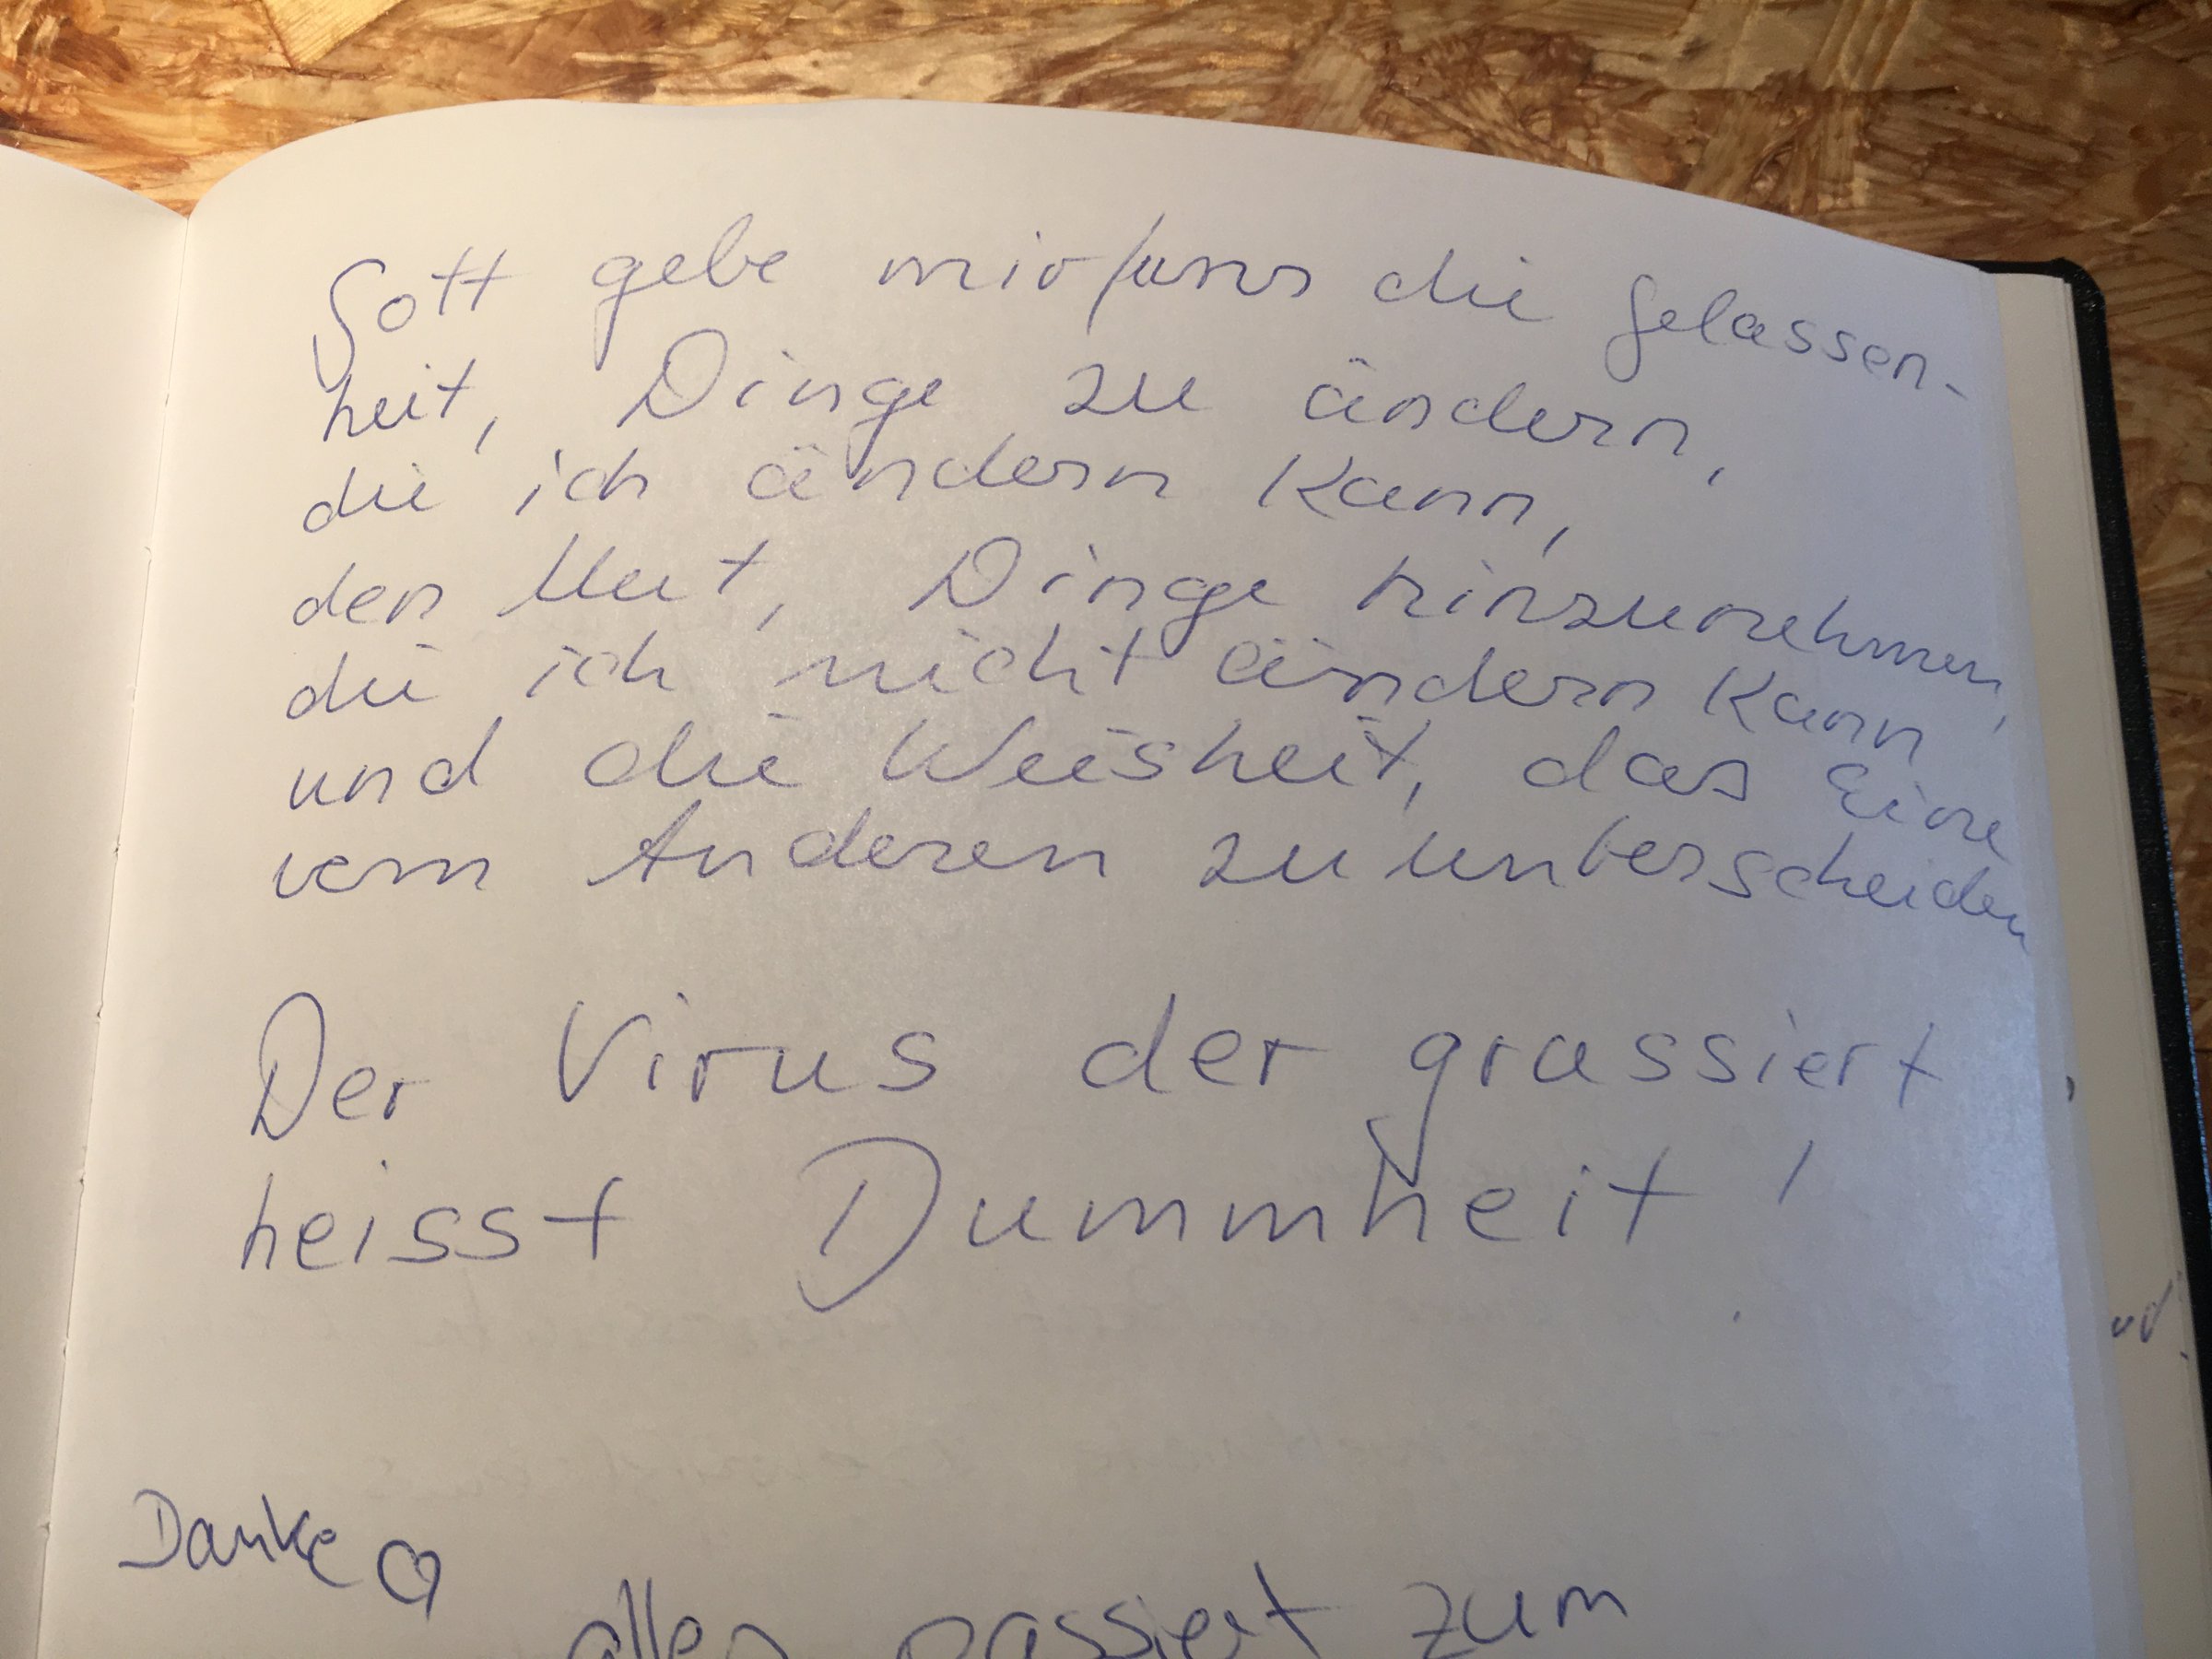 Gott gebe mir/uns die Gelassen-
heit, Dinge zu ändern,
die ich ändern kann,
den Mut, Dinge hinzunehmen,
die ich nicht ändern kann
und die Weisheit, das Eine
vom Anderen zu unterscheiden
Der Virus der grassiert
heisst Dummheit!
Danke ♡
alles passiert zum